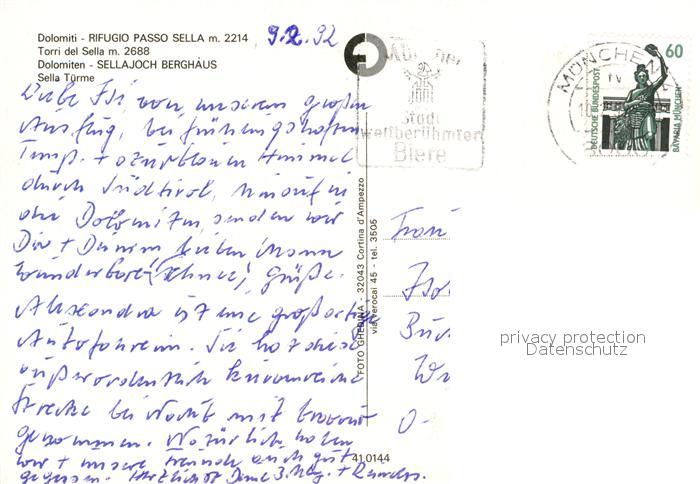 Dolomiti - RIFUGIO PASSO SELLA m. 2214
Torri del Sella m. 2688
Dolomiten - SELLAJOCH BERGHÄUS
Sella Türme
9.2.92
Liebe Isi, von unserem großen
Ausflug, bei frühlingshaften
Temp. + azurblauen Himmel
durch Südtirol, hinauf in
die Dolomiten, senden wir
Dir + Deinem lieben Mann
wunderbare (Schnee) Grüße.
Alexandra ist eine großartige
Autofahrerin. Sie hat diese
außerordentlich kurvenreiche
Strecke bei Nacht mit bravour
genommen. Natürlich haben
wir + unsere Freunde auch gut
gegessen. Herzlichst Deine
FOTO GHEDINA - 32043 Cortina d'Ampezzo
via Verocai 45 - tel. 3505
41.0144
Münchner
Stadt
weltberühmter
Biere
MÜNCHEN
60
DEUTSCHE BUNDESPOST
BAVARIA MÜNCHEN
Frau
privacy protection
Datenschutz